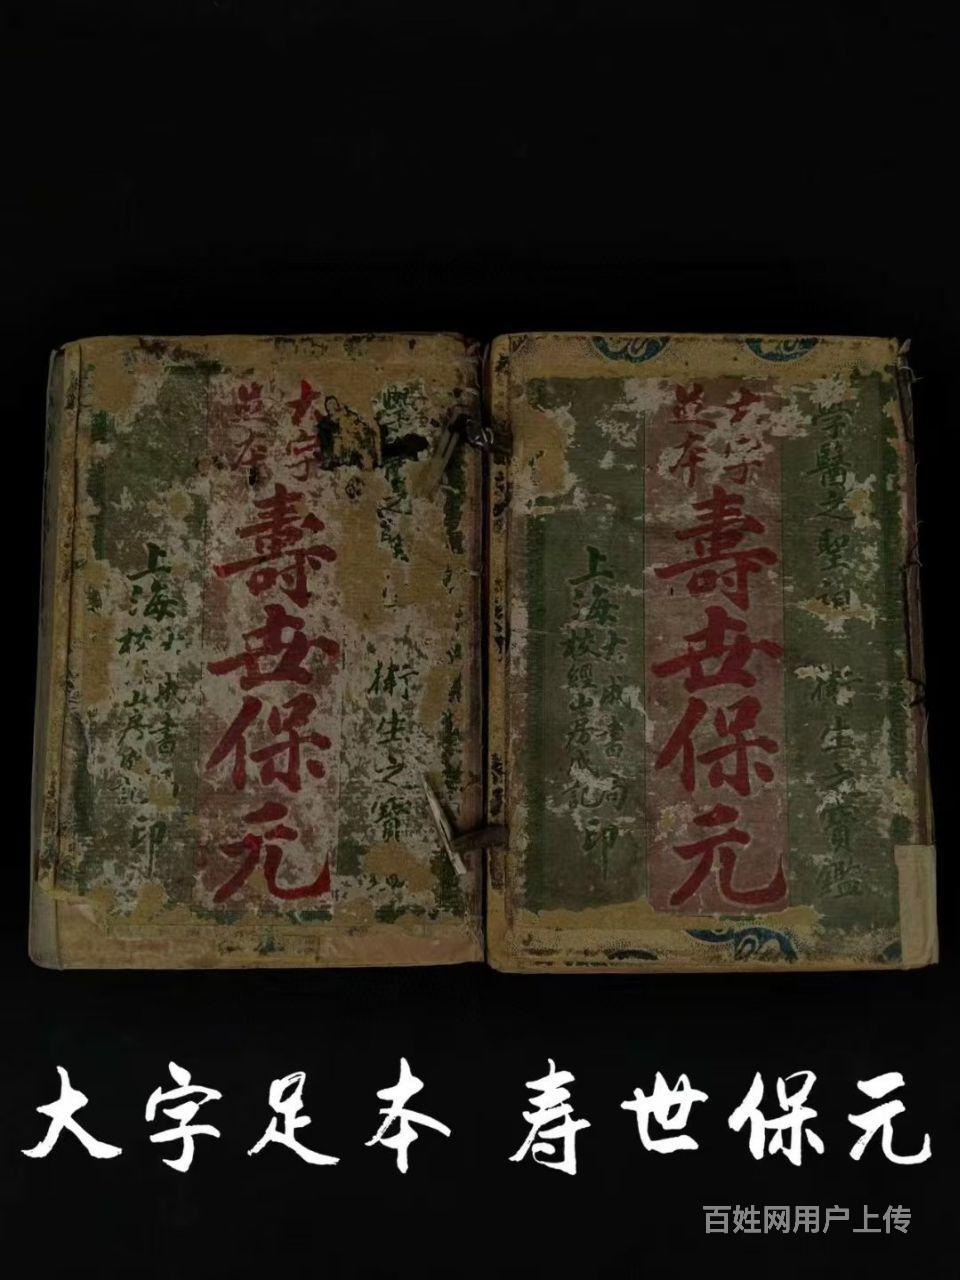 大字
足本
壽世保元
衛生之寶
上海
大成書
校
山房
印
大字
足本
壽世保元
學醫之聖
衛生之寶鑑
上海
大成書局
校經山房成記
印
大字足本 寿世保元
百姓网用户上传